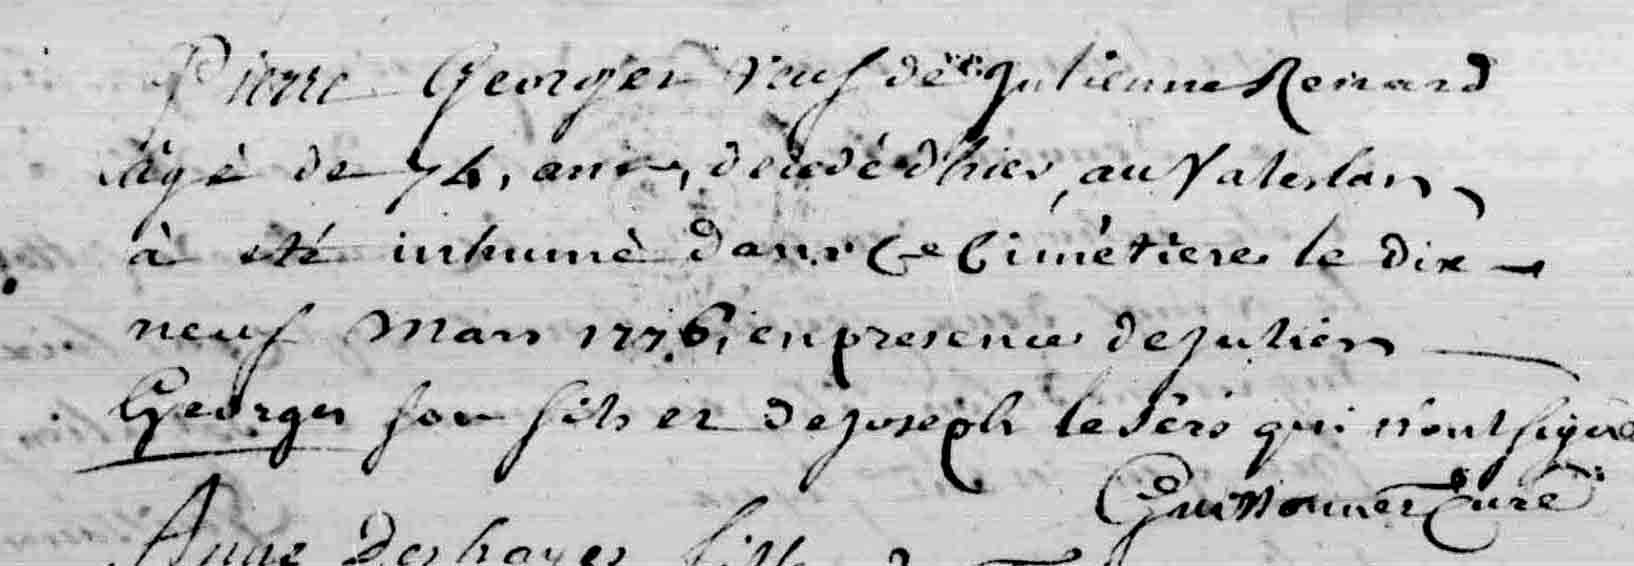 Pierre Georges veuf de Julienne Renard
âgé de 74, ans, décedé d'hier, au
à eté inhumé dans Ce Cimétiere le dix
neuf Mars 1776, en presence de Julien
Georges son fils et de joseph qui n'ont signé
Curé
Anne Deshayes fille